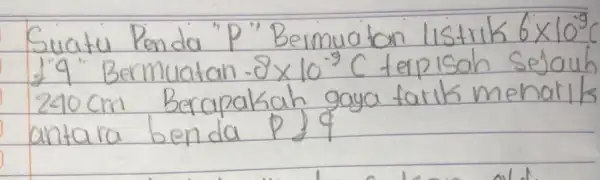 Suatu Benda "P" Bermuatan listrik 6×10⁻⁹C
& "q" Bermuatan -8×10⁻⁹ C terpisah sejauh
240 cm Berapakah gaya tarik menarik
antara benda P & q